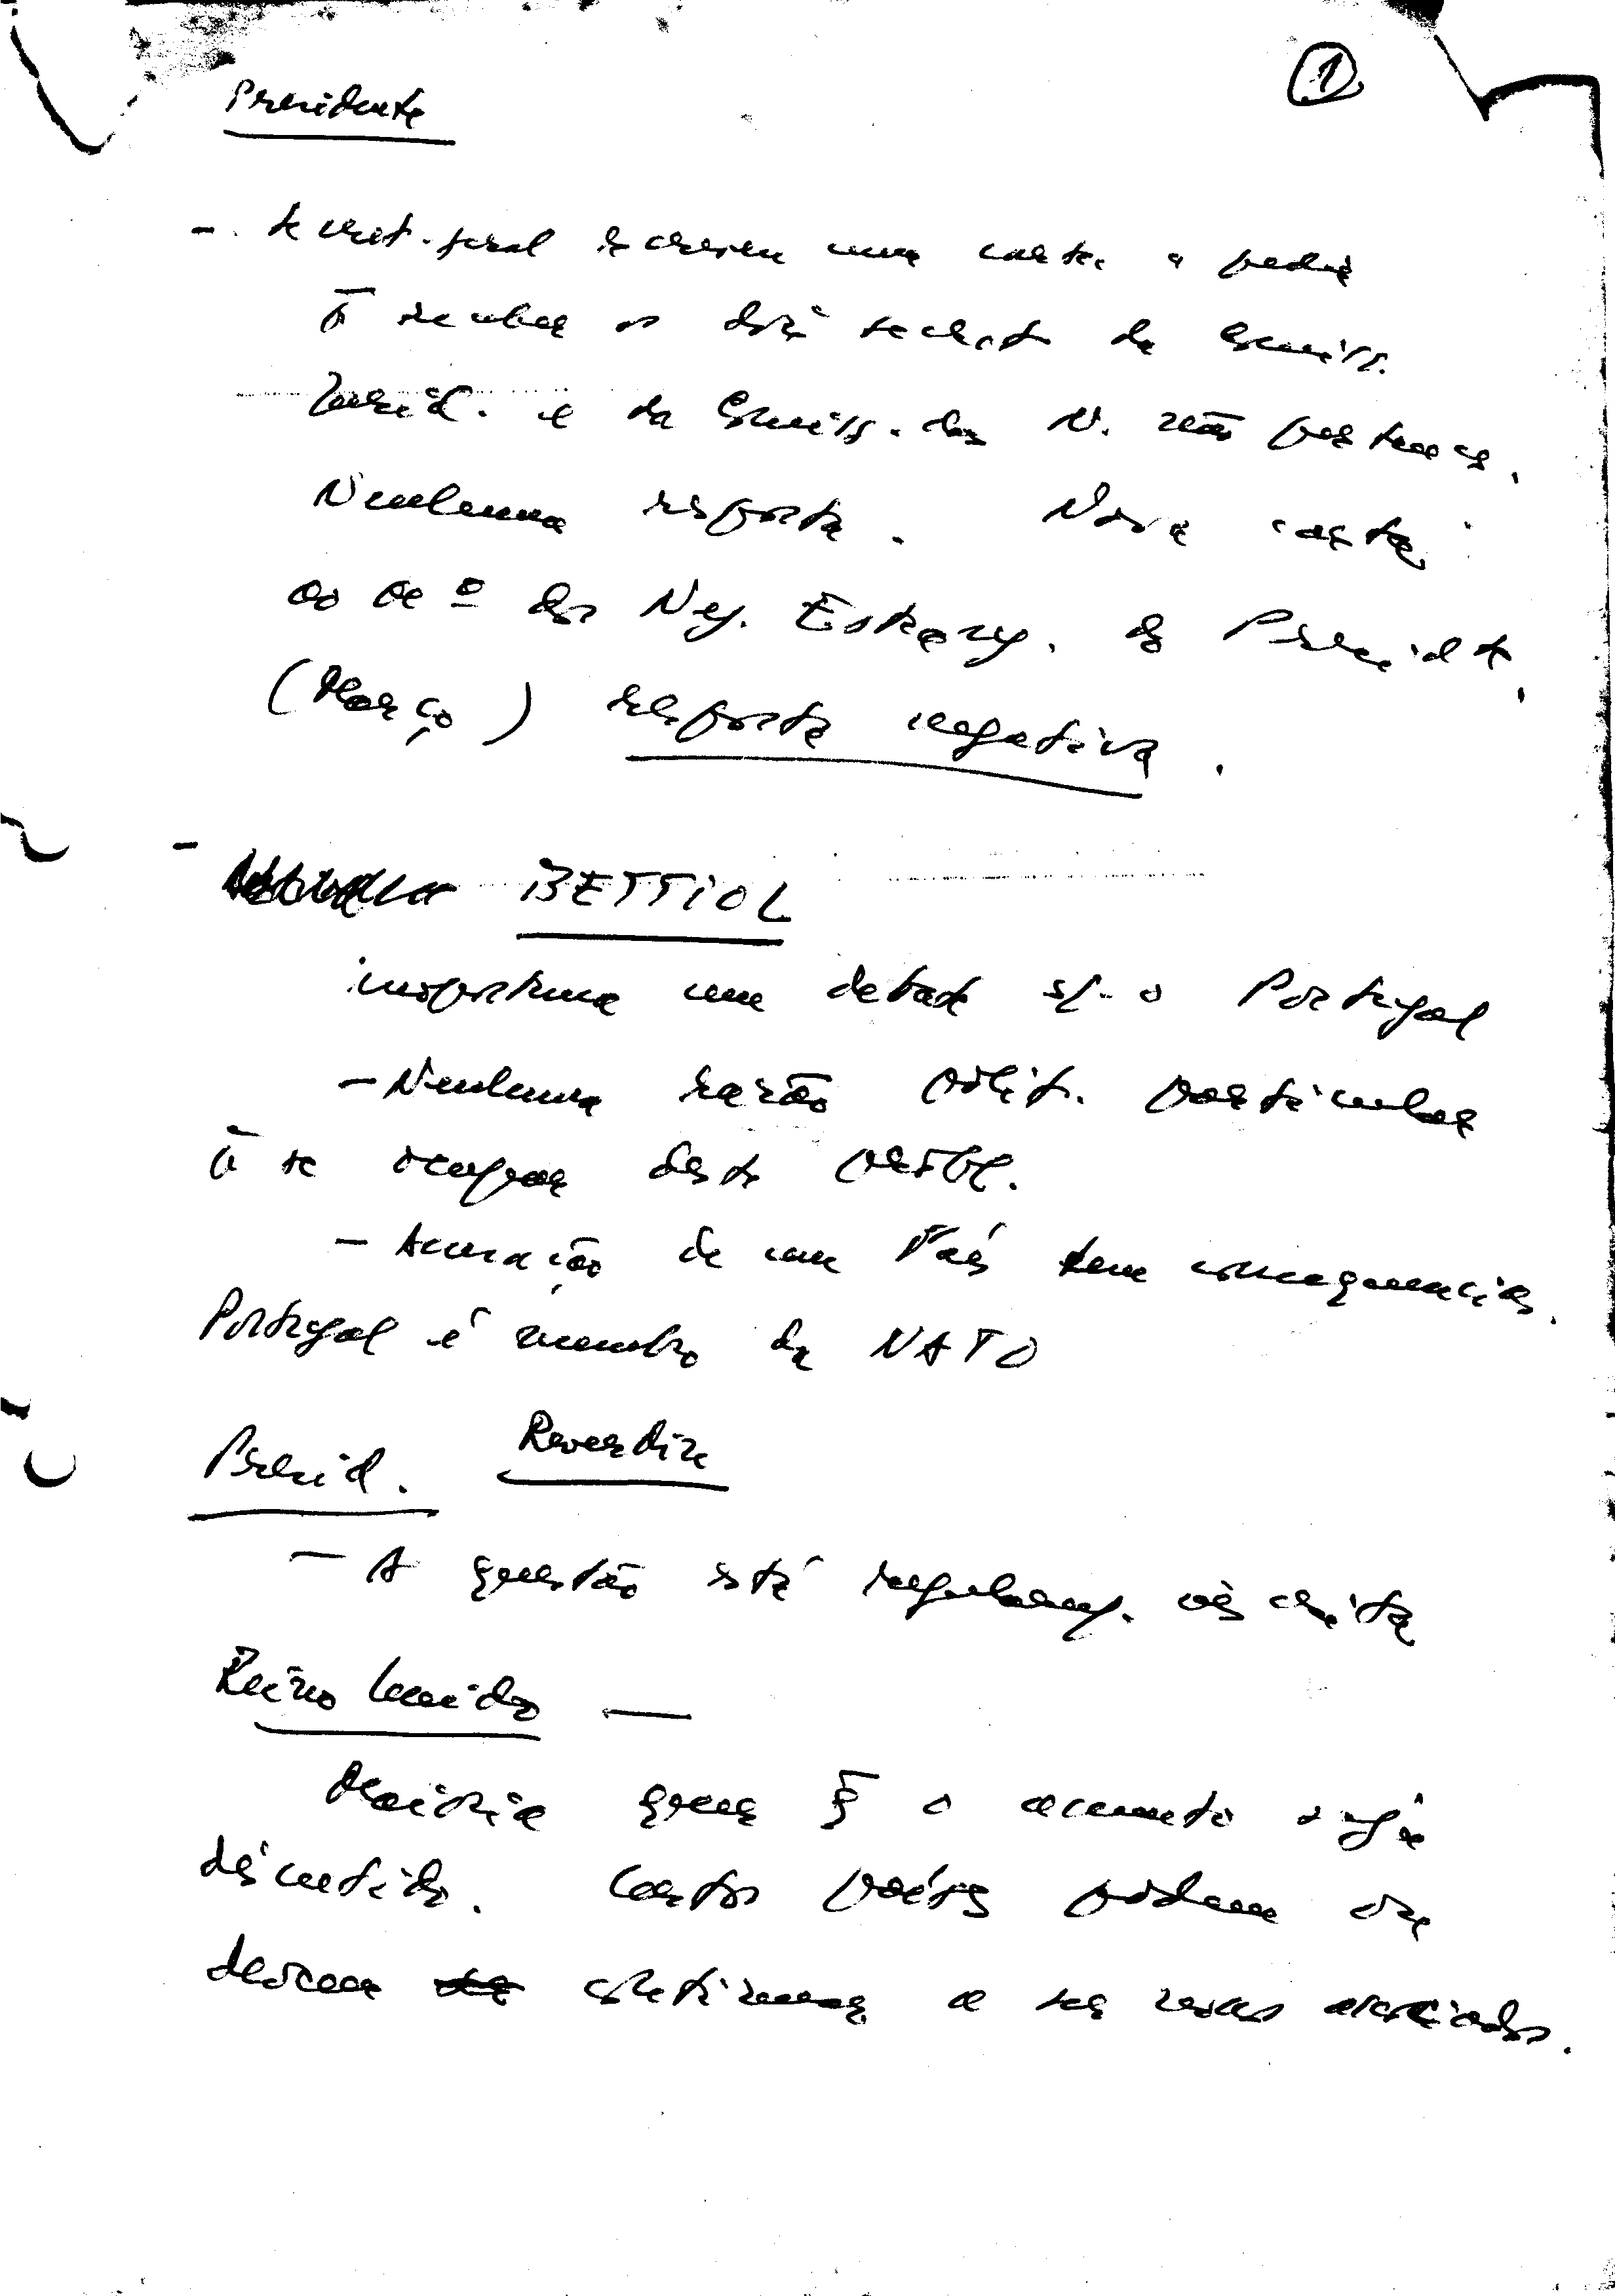 ①
Presidente
- Secret. geral escreveu uma carta a pedir
p̄ receber os dois secret. da Comiss.
Juríd. e da Comiss. das N. não pertenc.
Nenhuma resposta. Nova carta
ao Mº dos Neg. Estrang. do Presidt.
(Março) resposta negativa.
- BETTIOL
inoportuno um debate s/. o Portugal
- Nenhuma razão polít. particular
p̄ se ocupar deste probl.
- Acusação de um País tem consequencias.
Portugal é membro da NATO
Presid. Reverdin
- A questão está regularmt. inscrita
Reino Unido —
Maioria quer q̄ o assunto seja
discutido. Certos países podem ou
devem continuar a ser nossos associados.